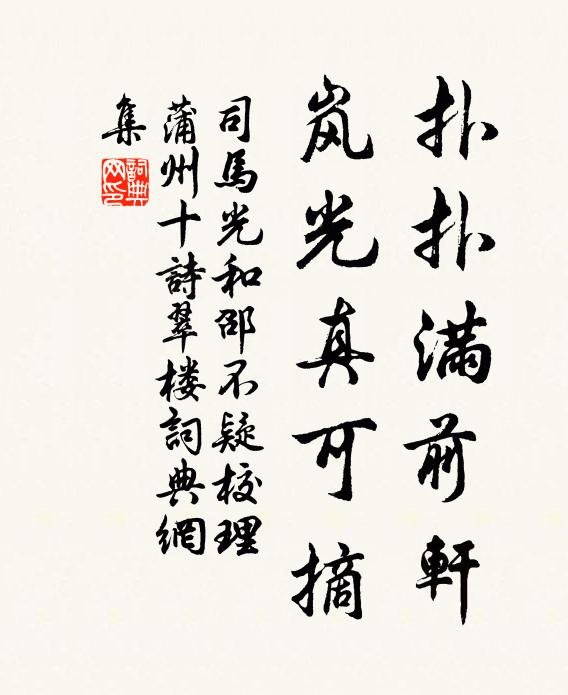 扑扑满前軒
岚光真可摘
司馬光和邵不疑校理
蒲州十詩翠楼詞典網
集
詞典網印